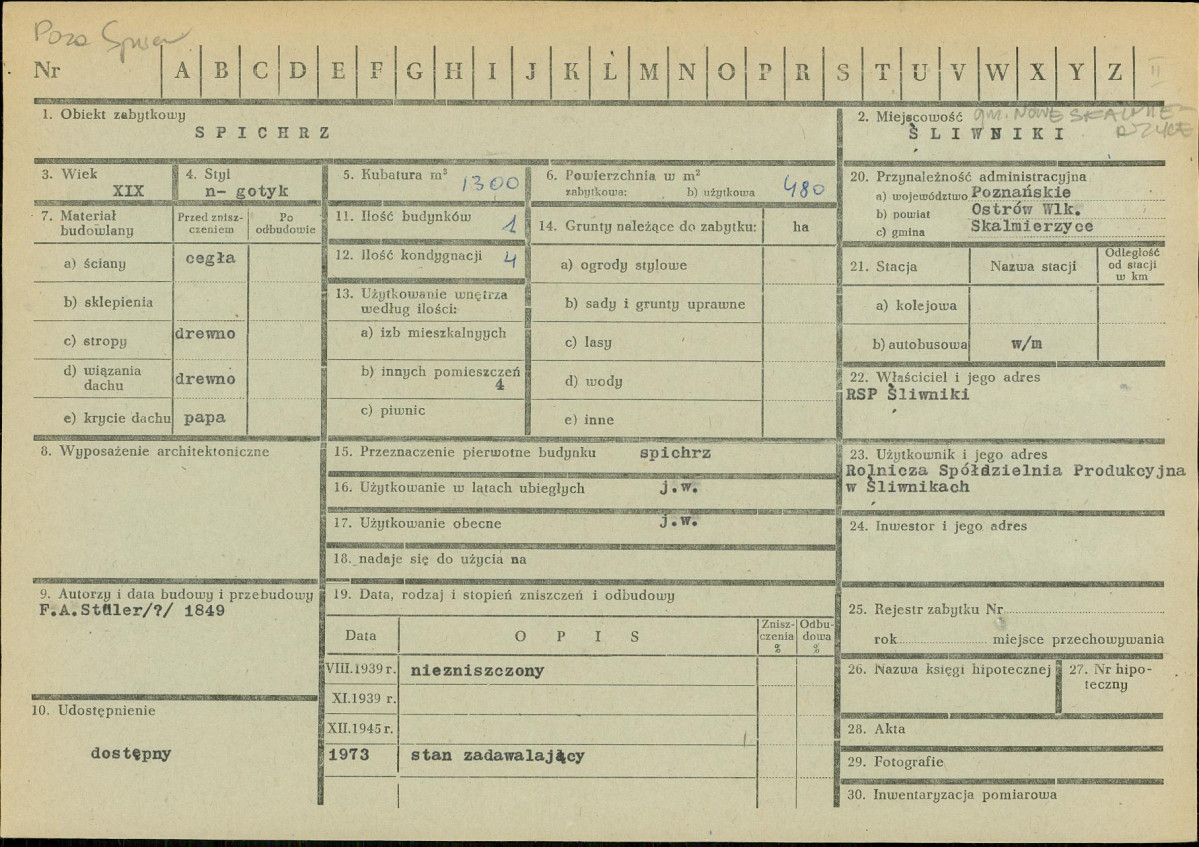 Poza
Nr A B C D E F G H I J K L M N O P R S T U V W X Y Z II
1. Obiekt zabytkowy
SPICHRZ
2. Miejscowość gm. NOWE SKALMIE-
RZYCE
ŚLIWNIKI
3. Wiek
XIX
4. Styl
n- gotyk
5. Kubatura m³ 1300
6. Powierzchnia w m²
zabytkowa: b) użytkowa 480
20. Przynależność administracyjna
a) województwo Poznańskie
b) powiat Ostrów Wlk.
c) gmina Skalmierzyce
7. Materiał
budowlany
Przed znisz-
czeniem
Po
odbudowie
a) ściany cegła
b) sklepienia
c) stropy drewno
d) wiązania
dachu drewno
e) krycie dachu papa
11. Ilość budynków 1
12. Ilość kondygnacji 4
13. Użytkowanie wnętrza
według ilości:
a) izb mieszkalnyych
b) innych pomieszczeń
4
c) piwnic
14. Grunty należące do zabytku: ha
a) ogrody stylowe
b) sady i grunty uprawne
c) lasy
d) wody
e) inne
21. Stacja Nazwa stacji Odległość
od stacji
w km
a) kolejowa
b) autobusowa w/m
22. Właściciel i jego adres
RSP Śliwniki
8. Wyposażenie architektoniczne
15. Przeznaczenie pierwotne budynku spichrz
16. Użytkowanie w latach ubiegłych j.w.
17. Użytkowanie obecne j.w.
18. nadaje się do użycia na
23. Użytkownik i jego adres
Rolnicza Spółdzielnia Produkcyjna
w Śliwnikach
24. Inwestor i jego adres
9. Autorzy i data budowy i przebudowy
F.A.Stüler/?/ 1849
19. Data, rodzaj i stopień zniszczeń i odbudowy
Data OPIS Znisz-
czenia
% Odbu-
dowa
%
VIII.1939 r. niezniszczony
XI.1939 r.
XII.1945 r.
1973 stan zadawalający
25. Rejestr zabytku Nr
rok miejsce przechowywania
26. Nazwa księgi hipotecznej
27. Nr hipo-
teczny
10. Udostępnienie
dostępny
28. Akta
29. Fotografie
30. Inwentaryzacja pomiarowa